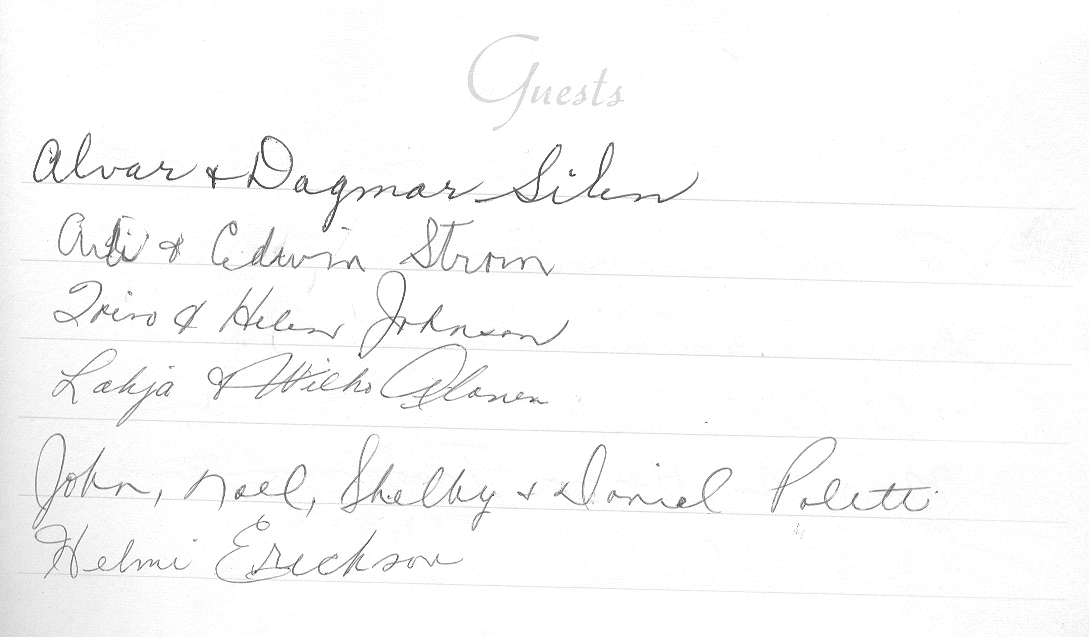 Guests
Alvar & Dagmar Silen
& Edwin Strom
& Helen Johnson
Lahja & Wilho Alanen
John, Noel, Shelby & Daniel Poletti
Helmi Erickson